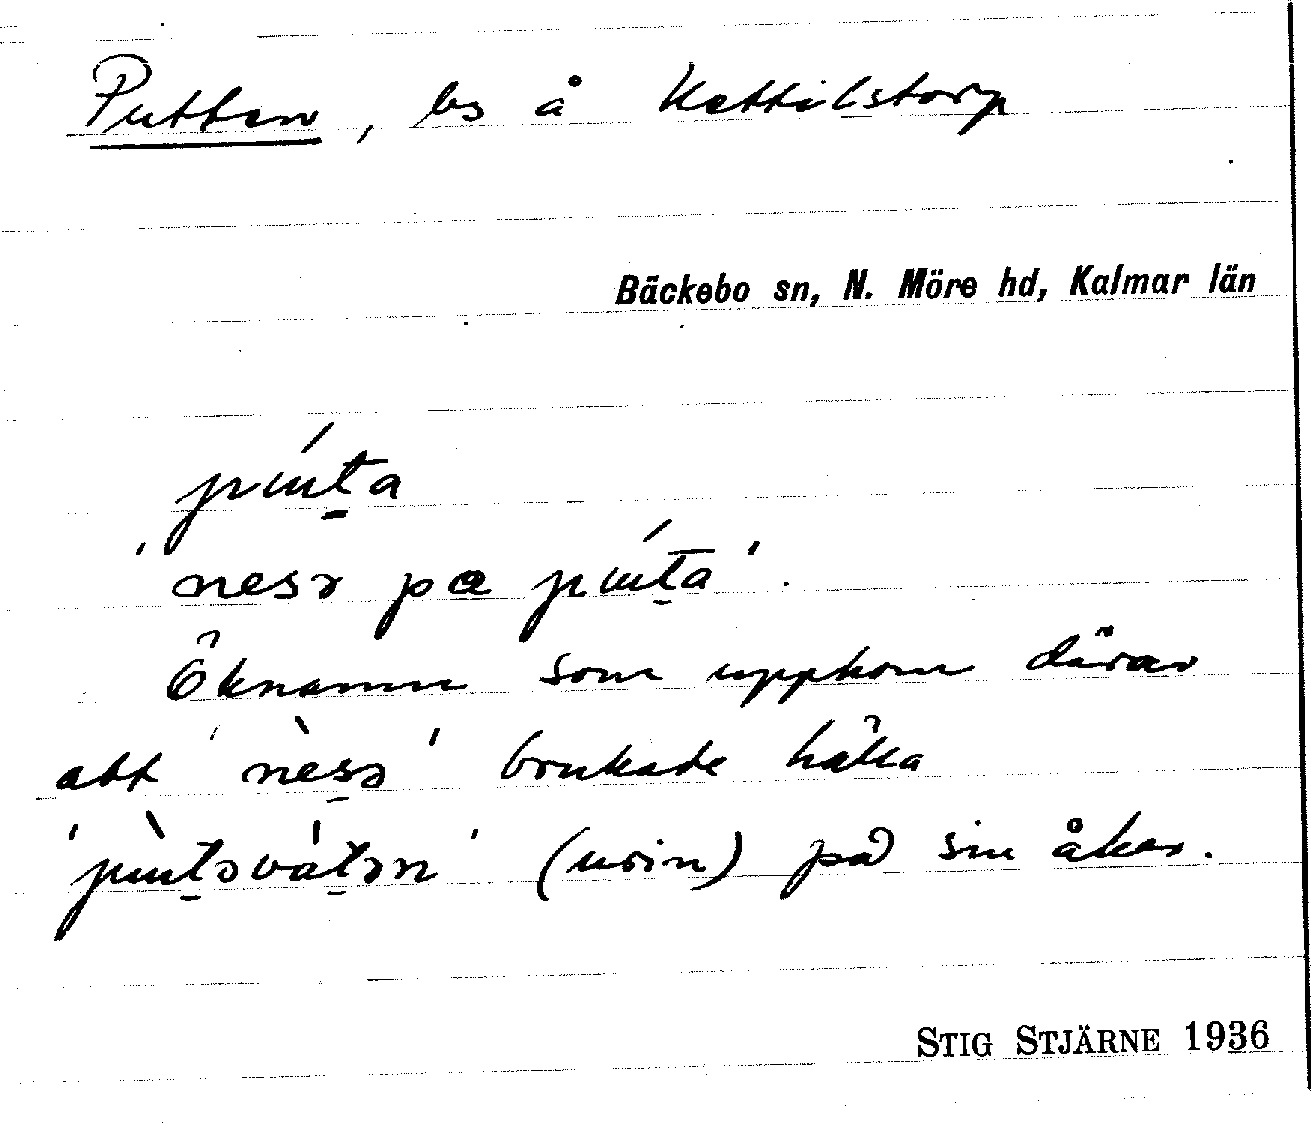 Putten, ls å Kettilstorp
Bäckebo sn, N. Möre hd, Kalmar län
púta
'nesə pa púta'.
Öknamn som uppkom därav
att 'nèsə' brukade hälla
'pùtəvátən' (urin) på sin åker.
STIG STJÄRNE 1936